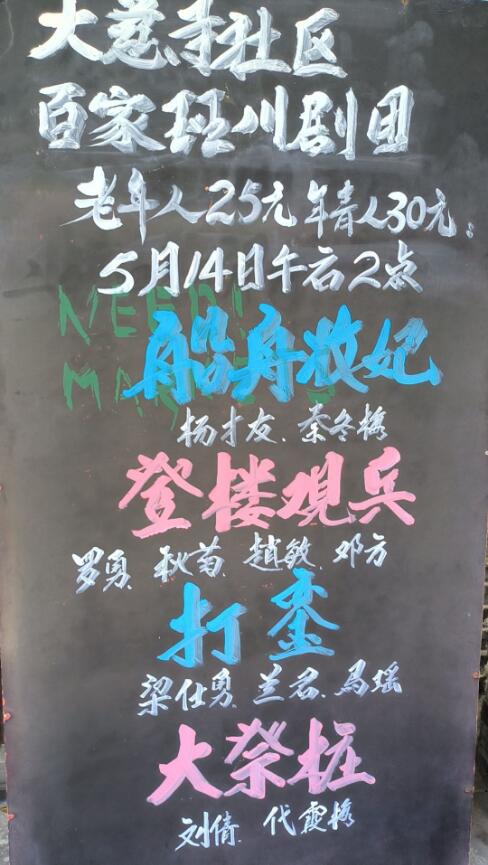 大慈寺社区
百家班川剧团
老年人25元 年青人30元:
5月14日午后2点
NEED!
船舟妝妃
杨才友、秦冬梅
登楼观兵
罗勇、秋菊、趙敏、邓方
打銮
梁仕勇、兰君、馬瑶
大祭桩
刘倩、代霞梅